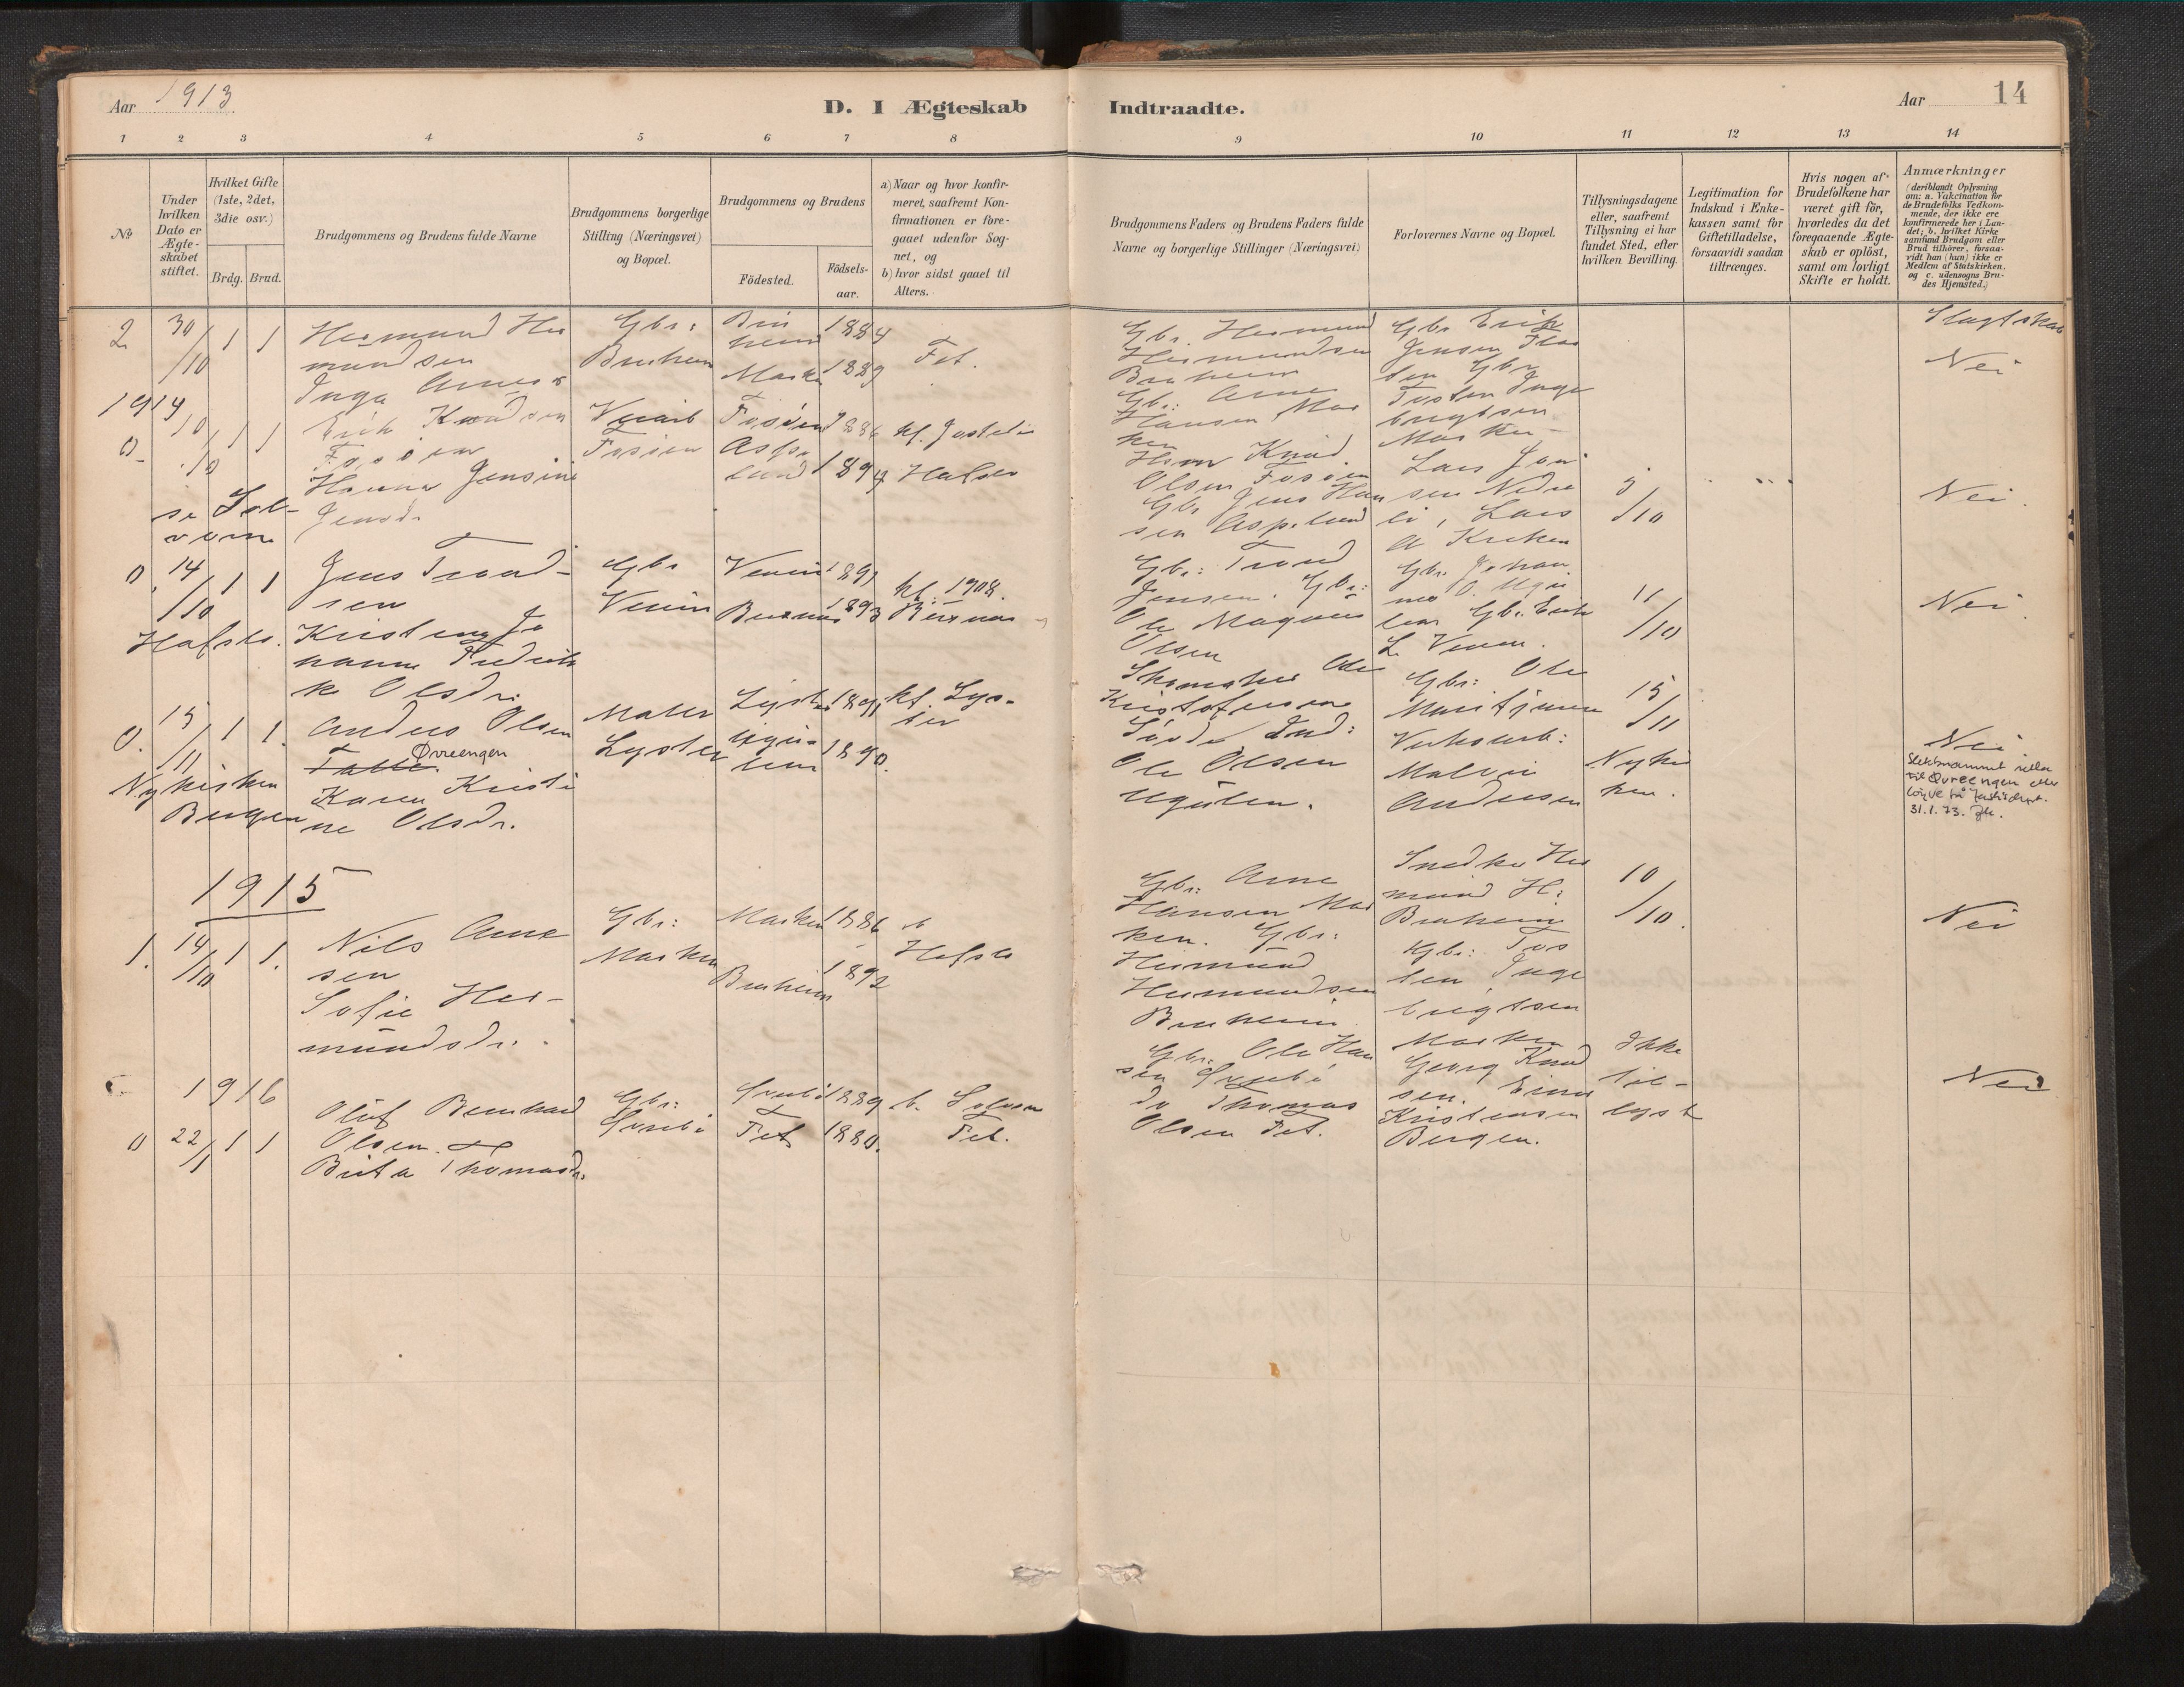 Aar 1913
D. I Ægteskab
Indtraadte.
Aar
14
1 2 3 4 5 6 7 8
9 10 11 12 13 14
No
Under hvilken Dato er Ægteskabet stiftet.
Hvilket Gifte (1ste, 2det, 3die osv.)
Brdg. Brud.
Brudgommens og Brudens fulde Navne
Brudgommens borgerlige Stilling (Næringsvei) og Bopæl.
Brudgommens og Brudens
Födested.
Födsels-aar.
a) Naar og hvor konfir-
meret, saafremt Kon-
firmationen er fore-
gaaet udenfor Sog-
net, og
b) hvor sidst gaaet til
Alters.
Brudgommens Faders og Brudens Faders fulde
Navne og borgerlige Stillinger (Næringsvei)
Forlovernes Navne og Bopæl.
Tillysningsdagene
eller, saafremt
Tillysning ei har
fundet Sted, efter
hvilken Bevilling.
Legitimation for
Indskud i Enke-
kassen samt for
Giftetilladelse,
forsaavidt saadan
tiltrænges.
Hvis nogen af
Brudefolkene har
været gift för,
hvorledes da det
foregaaende Ægte-
skab er oplöst,
samt om lovligt
Skifte er holdt.
Anmærkninger
(deriblandt Oplysning
om: a. Vakcination for
de Brudefolks Vedkom-
mende, der ikke ere
konfirmerede her i Lan-
det; b. hvilket Kirke
samfund Brudgom eller
Brud tilhörer, forsaa-
vidt han (hun) ikke er
Medlem af Statskirken.
og c. udensogns Bru-
des Hjemsted.)
2 30/10 1 1
Hermund Her
mundsen
Inga Arnesd
Gbr:
Bruheim
Bru
heim
Marken
1884
1889
Fet.
Gbr. Hermund
Hermundsen
Bruheim
Gbr: Arne
Hansen Mar
ken
Gbr Erik
Jensen Flo
ten Gbr
Tosten Inge
brigtsen
Marken
Slægtskab
Nei
1914
0 10/10 1 1
se Sol-
vorn
Erik Knudsen
Fosöen
Hanna Jensine
Jensd.
Fosöen
Fosöen
Aspe
lund
1886
1894
kf. Jostedin
Hafslo
Knud
Olsen Fosöen
Gbr Jens Han
sen Aspelund
Lars Jon
sen Nedre
li, Lars
A Kroken
/10
Nei
0. 14/10 1 1
Hafslo.
Jens Trond-
sen
Kristense Jo
hanne Fredrik
ke Olsdr.
Gbr
Venin
Venin
Beurnes
1891
1893
kf. 1908.
Gbr: Trond
Jensen. Gbr:
Ole Magnus
Olsen
Gbr. Johan
nes O. Ugu
len Gbr. Erik
L. Venen.
11/10
Nei
0. 15/11 1 1.
Nykirken
Bergen
Anders Olsen
Øvreengen
Karen Kristi
ne Olsdr.
Maler
Lyster
Lyster
Ugu-
len
1891
1890.
kf. Lys-
ter
Skomaker Ole
Kristofersen
Ole Olsen
Ugulen.
Gbr: Ole
Verksarb:
Andersen
15/11
Nykir
ken.
Nei
til Øvreengen etter
31.1.73.
1915
1. 14/10 1 1.
Nils Arne
sen
Sofie Her-
mundsdr.
Gbr:
Marken
Marken
Bruheim
1886
1892
b
Hafslo
Gbr: Arne
Hansen Mar
ken. Gbr:
Hermund
Hermundsen
Bruheim
Snedker Her
mund H:
Bruheim
Gbr: Tos
ten Inge
brigtsen
Marken
10/10.
Nei
1916
0 22/1 1 1
Olof Bernhard
Olsen.
Brita Thomasdr.
Gbr:
Fet
1889
1880.
b. Solvorn
Fet.
Gbr: Ole Han
sen
do Thomas
Olsen Fet.
Georg Knud
sen. Einar
Kristensen
Bergen.
Ikke
til-
lyst
Nei